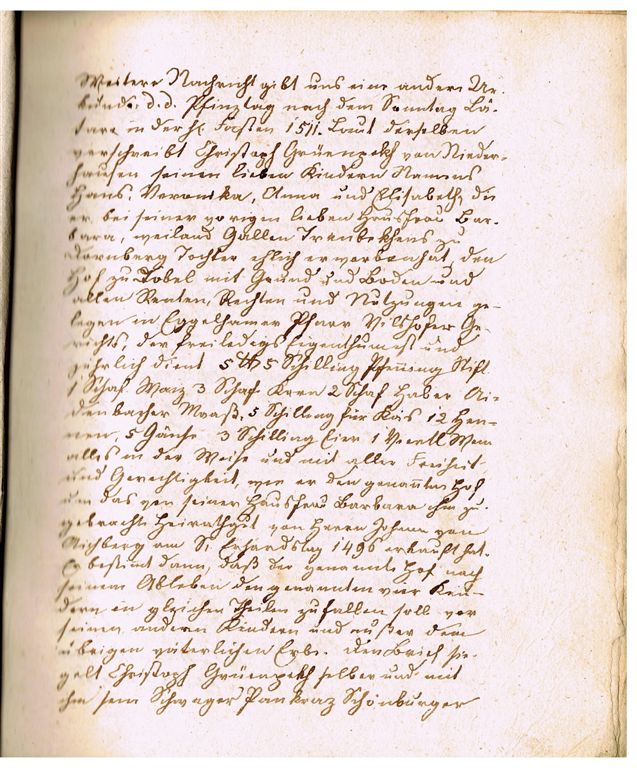 Weitere Nachricht gibt uns eine andere Ur-
kunde d.d. Pfinztag nach dem Sonntag Lä-
tare in der hl. Fasten 1511. Laut derselben
verschreibt Christoph Grüenpekh von Nieder-
hausen seinen lieben Kindern Namens
Hans, Veronika, Anna und Elisabeth, die
er bei seiner vorigen lieben Hausfrau Bar-
bara, weiland Gallen Trenbekhens zu
Dornberg Tochter ehlich erworben hat, den
Hof zu Tobel mit Grund und Boden und
allen Renten, Rechten und Nutzungen ge-
legen in Eggelhamer Pfarr Vilshofer Ge-
richts, der freiledigs Eigenthum ist und
jährlich dient 5 ₰ 5 Schilling Pfenning Stift
1 Schaf Waiz 3 Schaf Korn 2 Schaf Haber Ai-
denbacher Maaß, 5 Schilling für Käs 12 Hen-
nen, 5 Gänse 3 Schilling Eier 1 Viertl Wein
alles in der Weise und mit aller Freiheit
und Gerechtigkeit, wie er den genannten Hof
um das von seiner Hausfrau Barbara ihm zu-
gebrachte Heirathgut von Herrn Johann von
Aichberg am St Erhardstag 1496 erkauft hat.
Er bestimt dann, daß der genannte Hof nach
seinem Ableben den genannten vier Kin-
dern in gleichen Theilen zufallen soll vor
seinen andern Kindern und außer dem
übrigen väterlichen Erbe. Den Brief sie-
gelt Christoph Grüenpekh selber und mit
ihm sein Schwager Pankraz Schönburger